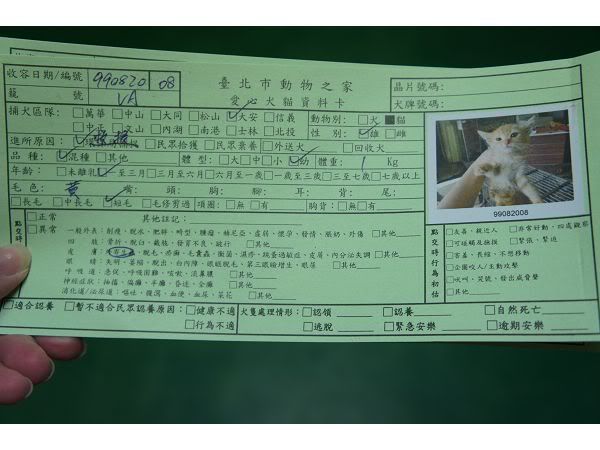 收容日期/編號 990820 08 臺北市動物之家 晶片號碼:
籠 號 VA 愛心犬貓資料卡 犬牌號碼:
捕犬區隊: □萬華 □中山 □大同 □松山 ☑大安 □信義 動物別: □犬 ■貓
□中正 □文山 □內湖 □南港 □士林 □北投 性 別: ☑雄 □雌
進所原因: □民眾拾獲 □民眾棄養 □外送犬 □回收犬
品 種: ☑混種 □其他 體 型: □大 □中 □小 ☑幼 體重: 1 Kg
年齡: □未離乳 ☑至三月 □三月至六月 □六月至一歲 □一歲至三歲 □三至七歲 □七歲以上
毛 色: 黃 嘴: 頭: 胸: 腳: 耳: 背: 尾:
□長毛 □中長毛 ☑短毛 □毛修剪過 項圈: □無 □有 胸背: □無 □有
99082008
點交時 □正常 其他註記:
□異常 一般外表: 削瘦、脫水、肥胖、畸型、腫瘤、赫尼亞、虛弱、懷孕、發情、脹奶、外傷 □其他
四 肢: 骨折、脫臼、截肢、發育不良、跛行 □其他
皮 膚: 外寄生、脫毛、疥癬、毛囊蟲、黴菌、濕疹、跳蚤過敏症、皮屑、內分泌失調 □其他
眼 睛: 失明、萎縮、脫出、白內障、眼瞼脫毛、第三眼瞼增生、眼屎 □其他
呼 吸 道: 急促、呼吸困難、咳嗽、流鼻膿 □其他
神經症狀: 抽搐、偏癱、半癱、昏迷、全癱 □其他
消化道/泌尿道: 嘔吐、腹瀉、血便、血尿、菜花 □其他
點交時行為初估
□友善、親近人 □非常好動、四處觀察
□可碰觸及撫摸 □緊張、緊迫
□害羞、畏縮、不想移動
□企圖咬人/主動攻擊
□吠叫、哭號、發出威脅聲
□其他
□適合認養 □暫不適合民眾認養原因: □健康不適 犬隻處理情形: □認領 □認養 □自然死亡
□行為不適 □逃脫 □緊急安樂 □逾期安樂